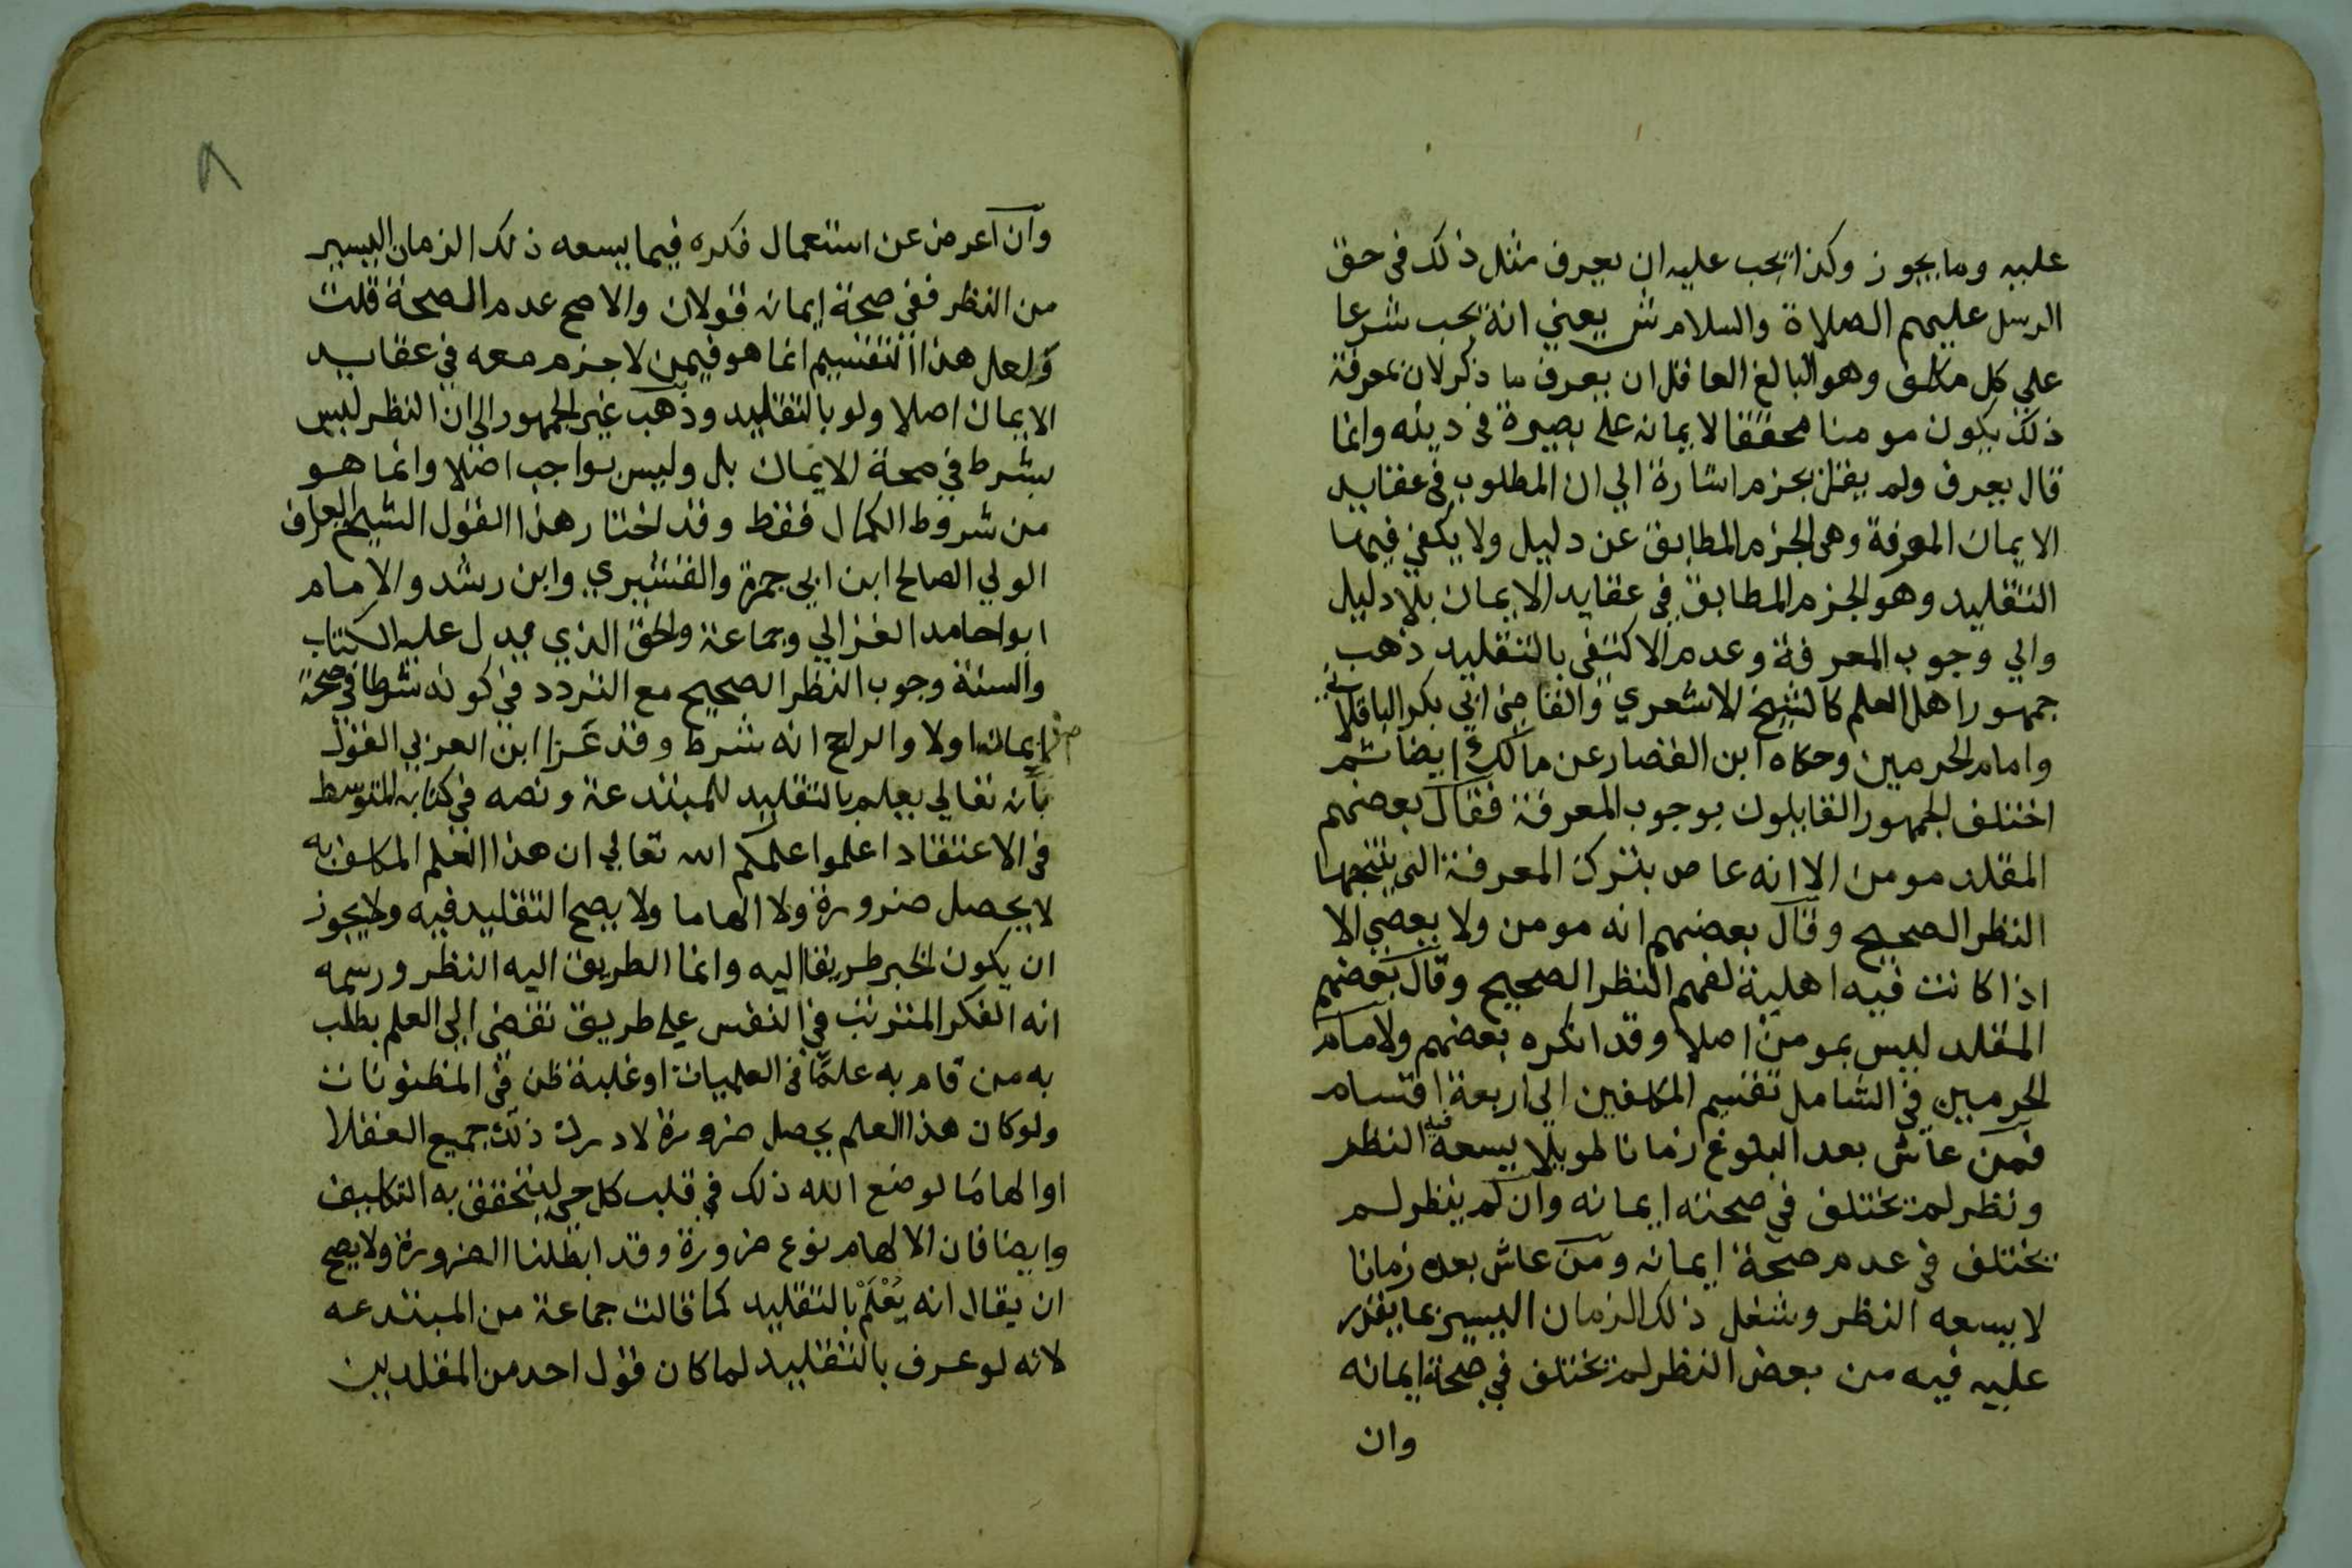 عليه وما يجوز وكذا يجب عليه ان يعرف مثل ذلك في حق
الرسل عليهم الصلاة والسلام ش يعني انه يجب شرعا
علي كل مكلف وهو البالغ العاقل ان يعرف ما ذكر لان بمعرفة
ذلك يكون مومنا محققا لايمانه على بصيرة في دينه وانما
قال يعرف ولم يقل يجزم اشارة الي ان المطلوب في عقايد
الايمان المعرفة وهي الجزم المطابق عن دليل ولا يكفي فيها
التقليد وهو الجزم المطابق في عقايد الايمان بلا دليل
والي وجوب المعرفة وعدم الاكتفى بالتقليد ذهب
جمهور اهل العلم كالشيخ الاشعري والقاضي ابي بكر الباقلاني
وامام الحرمين وحكاه ابن القصار عن مالك ايضا ثم
اختلف الجمهور القايلون بوجوب المعرفة فقال بعضهم
المقلد مومن الا انه عاص بترك المعرفة التي ينتجها
النظر الصحيح وقال بعضهم انه مومن ولا يعصي الا
اذا كانت فيه اهلية لفهم النظر الصحيح وقال بعضهم
المقلد ليس بمومن اصلا وقد انكره بعضهم ولامام
الحرمين في الشامل تقسيم المكلفين الي اربعة اقسام
فمن عاش بعد البلوغ زمانا طويلا يسعه فيه النظر
ونظر لم يختلف في صحته ايمانه وان لم ينظر لم
يختلف في عدم صحة ايمانه ومن عاش بعده زمانا
لا يسعه النظر وشغل ذلك الزمان اليسير بما يقدر
عليه فيه من بعض النظر لم يختلف في صحة ايمانه
وان
٨
وان اعرض عن استعمال فكره فيما يسعه ذلك الزمان اليسير
من النظر ففي صحة ايمانه قولان والاصح عدم الصحة قلت
ولعل هذا التقسيم انما هو فيمن لا جزم معه في عقايد
الايمان اصلا ولو بالتقليد وذهب غير الجمهور الي ان النظر ليس
بشرط في صحة الايمان بل وليس بواجب اصلا وانما هو
من شروط الكمال فقط وقد اختار هذا القول الشيخ العارف
الولي الصالح ابن ابي جمرة والقشيري وابن رشد والامام
ابو احامد الغزالي وجماعة والحق الذي يدل عليه الكتاب
والسنة وجوب النظر الصحيح مع التردد في كونه شرطا في صحة
ايمانه اولا والراجح انه شرط وقد عزا ابن العربي القول
بانه تعالي يعلم بالتقليد للمبتدعة ونصه في كتابه المتوسط
في الاعتقاد اعلموا علمكم الله تعالي ان هذا العلم المكلف به
لا يحصل ضرورة ولا الهاما ولا يصح التقليد فيه ولا يجوز
ان يكون الخبر طريقا اليه وانما الطريق اليه النظر ورسمه
انه الفكر المترتب في النفس علي طريق تفضي الي العلم بطلب
به من قام به علما في العلميات او غلبة ظن في المظنونات
ولو كان هذا العلم يحصل ضرورة لادرك ذلك جميع العقلا
او الهاما لوضع الله ذلك في قلب كل حي ليتحقق به التكليف
وايضا فان الالهام نوع ضرورة وقد ابطلنا الضرورة ولا يصح
ان يقال انه يُعْلَمْ بالتقليد كما قالت جماعة من المبتدعه
لانه لو عرف بالتقليد لما كان قول احد من المقلدين